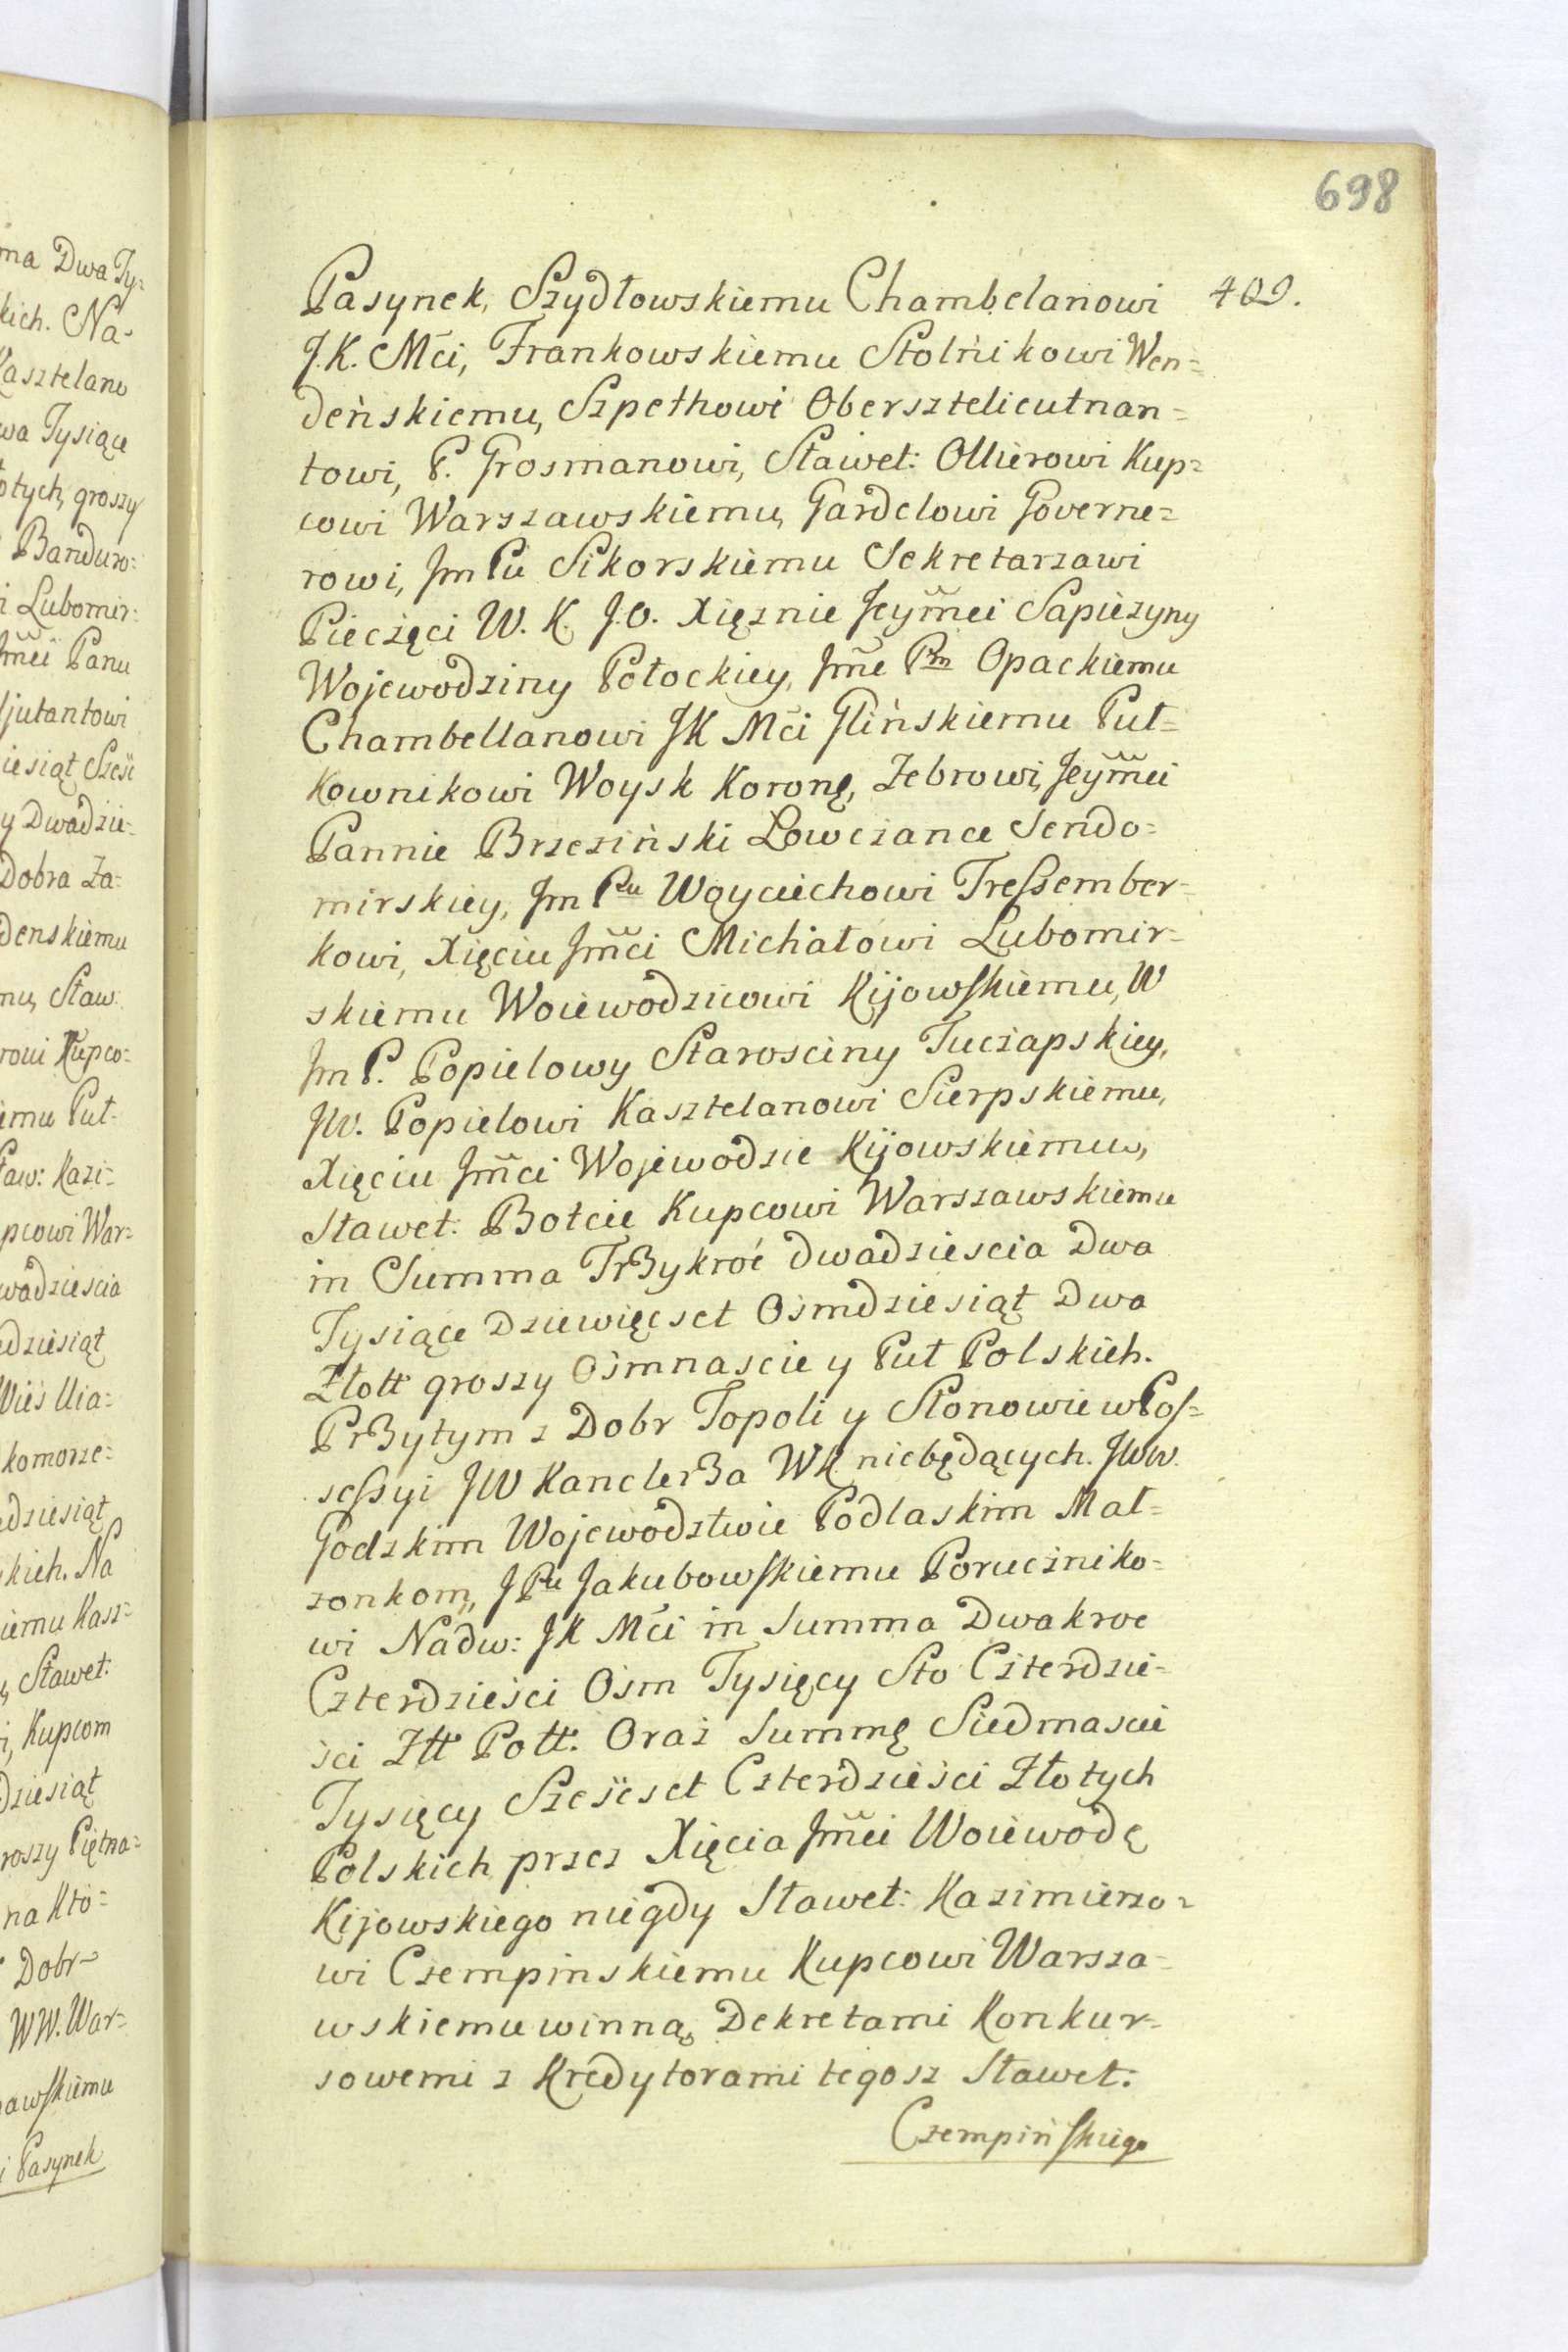 698
Pasynek, Szydłowskiemu Chambelanowi 409.
J.K. Mći, Frankowskiemu Stolnikowi Wen=
deńskiemu, Szpethowi Obersztelieutnan=
towi, P. Grosmanowi, Sławet: Ollierowi Kup=
cowi Warszawskiemu, Gardelowi Governe=
rowi, Jm Pu Sikorskiemu Sekretarzawi
Pieczęci W. K. J.O. Xięznie Jeymci Sapiezyny
Wojewodziny Połockiey, Jme Pm Opackiemu
Chambellanowi JK Mći Glińskiemu Puł=
kownikowi Woysk Koronę, Zebrowi, Jeymci
Pannie Brzeziński Łowczance Sendo=
mirskiey, Jm Pu Woyciechowi Treſsember=
kowi, Xięciu Jmci Michałowi Lubomir=
skiemu Woiewodzicowi Kijowſkiemu, W
Jm P. Popielowy Starosciny Tuczapskiey,
JW. Popielowi Kasztelanowi Sierpskiemu,
Xięciu Jmci Wojewodzie Kijowskiemu,
Sławet: Botcie Kupcowi Warszawskiemu
in Summa Trzykroć dwadziescia Dwa
Tysiące Dziewięcset Ośmdziesiąt Dwa
Złott groszy Ośmnascie y Puł Polskich.
Przytym z Dobr Topoli y Stonowie w Poſ=
seſsyi JW Kanclerza WK niebędących. JWW.
Godzkim Wojewodztwie Podlaskim Mał=
zonkom, J Pu Jakubowſkiemu Poruczniko=
wi Nadw: JK Mći in Summa Dwakroc
Czterdzieści Ośm Tysięcy Sto Czterdzie=
ści Złt Polł. Oraz Summę Siedmascie
Tysięcy Sześcset Czterdzieści Złotych
Polskich przez Xięcia Jmci Woiewodę
Kijowskiego niegdy Sławet: Kazimierzo=
wi Czempinskiemu Kupcowi Warsza=
wskiemu winną, Dekretami Konkur=
sowemi z Kredytorami tegosz Sławet:
Czempińſkiego
ma Dwa Ty=
kich. Na=
Kasztelano
wa Tysiące
otych, groszy
Banduro=
i Lubomir=
Jmci Panu
djutantowi
iesiąt Sześć
y Dwadzie=
Dobra Za=
denskiemu
mu, Sław:
rowi Kupco=
iemu Puł=
Sław: Kazi=
pcowi War=
wadziescia
edziesiąt
Wieś Uia=
komorze=
edziesiąt
kich. Na
iemu Kasz=
, Sławet:
i, Kupcom
dziesiąt
roszy Piętna=
na Kto=
Dobr
WW. War=
awſkiemu
i Pasynek